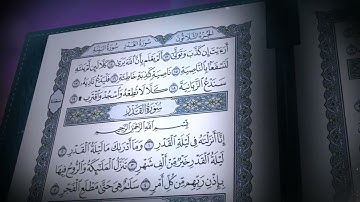 الجزء الثلاثون سورة القدر سورة البينة
أرءيت إن كذب وتولى ١٣ ألم يعلم بأن الله يرى ١٤ كلا لئن لم ينته
لنسفعا بالناصية ١٥ ناصية كاذبة خاطئة ١٦ فليدع ناديه ١٧
سندع الزبانية ١٨ كلا لا تطعه واسجد واقترب ١٩
سورة القدر
بسم الله الرحمن الرحيم
إنا أنزلناه في ليلة القدر ١ وما أدراك ما ليلة القدر ٢
ليلة القدر خير من ألف شهر ٣ تنزل الملائكة والروح فيها
بإذن ربهم من كل أمر ٤ سلام هي حتى مطلع الفجر ٥